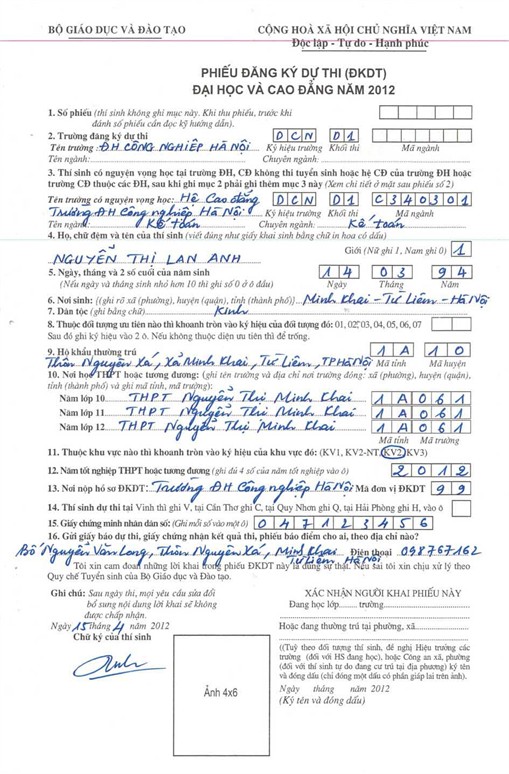 BỘ GIÁO DỤC VÀ ĐÀO TẠO
CỘNG HOÀ XÃ HỘI CHỦ NGHĨA VIỆT NAM
Độc lập - Tự do - Hạnh phúc
PHIẾU ĐĂNG KÝ DỰ THI (ĐKDT)
ĐẠI HỌC VÀ CAO ĐẲNG NĂM 2012
1. Số phiếu (thí sinh không ghi mục này. Khi thu phiếu, trước khi
đánh số phiếu cần đọc kỹ hướng dẫn).
2. Trường đăng ký dự thi D C N D 1
Tên trường: ĐH CÔNG NGHIỆP HÀ NỘI Ký hiệu trường Khối thi Mã ngành
Tên ngành: Chuyên ngành:
3. Thí sinh có nguyện vọng học tại trường ĐH, CĐ không thi tuyển sinh hoặc hệ CĐ của trường ĐH hoặc
trường CĐ thuộc các ĐH, sau khi ghi mục 2 phải ghi thêm mục 3 này (Xem chi tiết ở mặt sau phiếu số 2)
Tên trường có nguyện vọng học: Hệ Cao đẳng D C N D 1 C 3 4 0 3 0 1
Trường ĐH Công nghiệp Hà Nội Ký hiệu trường Khối thi Mã ngành
Tên ngành: Kế toán Chuyên ngành: Kế toán
4. Họ, chữ đệm và tên của thí sinh (viết đúng như giấy khai sinh bằng chữ in hoa có dấu)
NGUYỄN THỊ LAN ANH Giới (Nữ ghi 1, Nam ghi 0) 1
5. Ngày, tháng và 2 số cuối của năm sinh 1 4 0 3 9 4
(Nếu ngày và tháng sinh nhỏ hơn 10 thì ghi số 0 ở ô đầu) Ngày Tháng Năm
6. Nơi sinh: (ghi rõ xã (phường), huyện (quận), tỉnh (thành phố)) Minh Khai - Từ Liêm - Hà Nội
7. Dân tộc (ghi bằng chữ) Kinh
8. Thuộc đối tượng ưu tiên nào thì khoanh tròn vào ký hiệu của đối tượng đó: 01, 02, 03, 04, 05, 06, 07
Sau đó ghi ký hiệu vào 2 ô. Nếu không thuộc diện ưu tiên thì để trống.
9. Hộ khẩu thường trú 1 A 1 0
Thôn Nguyên Xá, Xã Minh Khai, Từ Liêm, TP Hà Nội Mã tỉnh Mã huyện
10. Nơi học THPT hoặc tương đương: (ghi tên trường và địa chỉ nơi trường đóng: xã (phường), huyện (quận),
tỉnh (thành phố) và ghi mã tỉnh, mã trường):
Năm lớp 10 THPT Nguyễn Thị Minh Khai 1 A 0 6 1
Năm lớp 11 THPT Nguyễn Thị Minh Khai 1 A 0 6 1
Năm lớp 12 THPT Nguyễn Thị Minh Khai 1 A 0 6 1
Mã tỉnh Mã trường
11. Thuộc khu vực nào thì khoanh tròn vào ký hiệu của khu vực đó: (KV1, KV2-NT, KV2, KV3)
12. Năm tốt nghiệp THPT hoặc tương đương (ghi đủ 4 số của năm tốt nghiệp vào ô) 2 0 1 2
13. Nơi nộp hồ sơ ĐKDT: Trường ĐH Công nghiệp Hà Nội Mã đơn vị ĐKDT 9 9
14. Thí sinh dự thi tại Vinh thì ghi V, tại Cần Thơ ghi C, tại Quy Nhơn ghi Q, tại Hải Phòng ghi H, vào ô
15. Giấy chứng minh nhân dân số: (Ghi mỗi số vào một ô) 0 4 7 1 2 3 4 5 6
16. Gửi giấy báo dự thi, giấy chứng nhận kết quả thi, phiếu báo điểm cho ai, theo địa chỉ nào?
Bố Nguyễn Văn Long, Thôn Nguyên Xá, Minh Khai Điện thoại 098767162
Từ Liêm Hà Nội
Tôi xin cam đoan những lời khai trong phiếu ĐKDT này là đúng sự thật. Nếu sai tôi xin chịu xử lý theo
Quy chế Tuyển sinh của Bộ Giáo dục và Đào tạo.
Ghi chú: Sau ngày thi, mọi yêu cầu sửa đổi
bổ sung nội dung lời khai sẽ không
được chấp nhận.
Ngày 15 tháng 4 năm 2012
Chữ ký của thí sinh
Anh
Ảnh 4x6
XÁC NHẬN NGƯỜI KHAI PHIẾU NÀY
Đang học lớp trường
Hoặc đang thường trú tại phường, xã
((Tuỳ theo đối tượng thí sinh, đề nghị Hiệu trưởng các
trường (đối với HS đang học), hoặc Công an xã, phường
(đối với thí sinh tự do đang cư trú tại địa phương) ký tên
và đóng dấu (chỉ đóng một dấu có phần giáp lai trên ảnh).
Ngày tháng năm 2012
(Ký tên và đóng dấu)